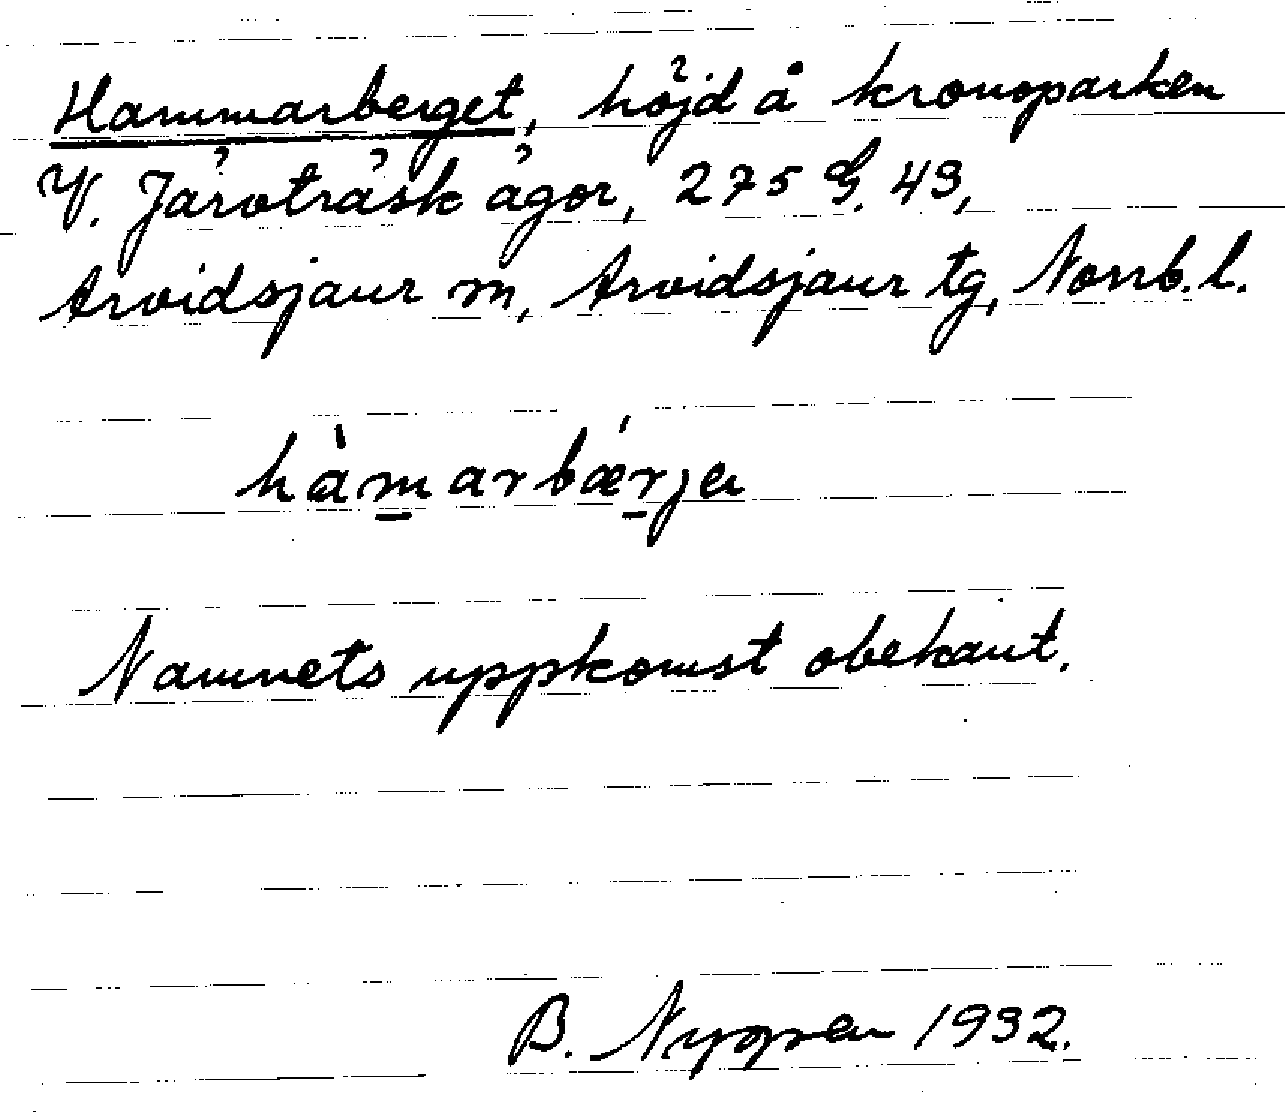 Hammarberget, höjd å kronoparken
V. Järvträsk ägor, 275 G. 43,
Arvidsjaur sn, Arvidsjaur tg, Norrb. l.
hàmarbǽrjɐ
Namnets uppkomst obekant.
B. Nygren 1932.